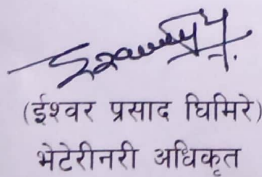 (ईश्वर प्रसाद घिमिरे)
भेटेरीनरी अधिकृत